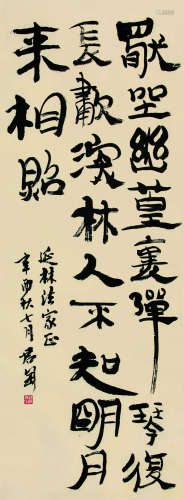 獨坐幽篁裏彈琴復
長嘯深林人不知明月
来相照
延林法家正
辛酉秋七月